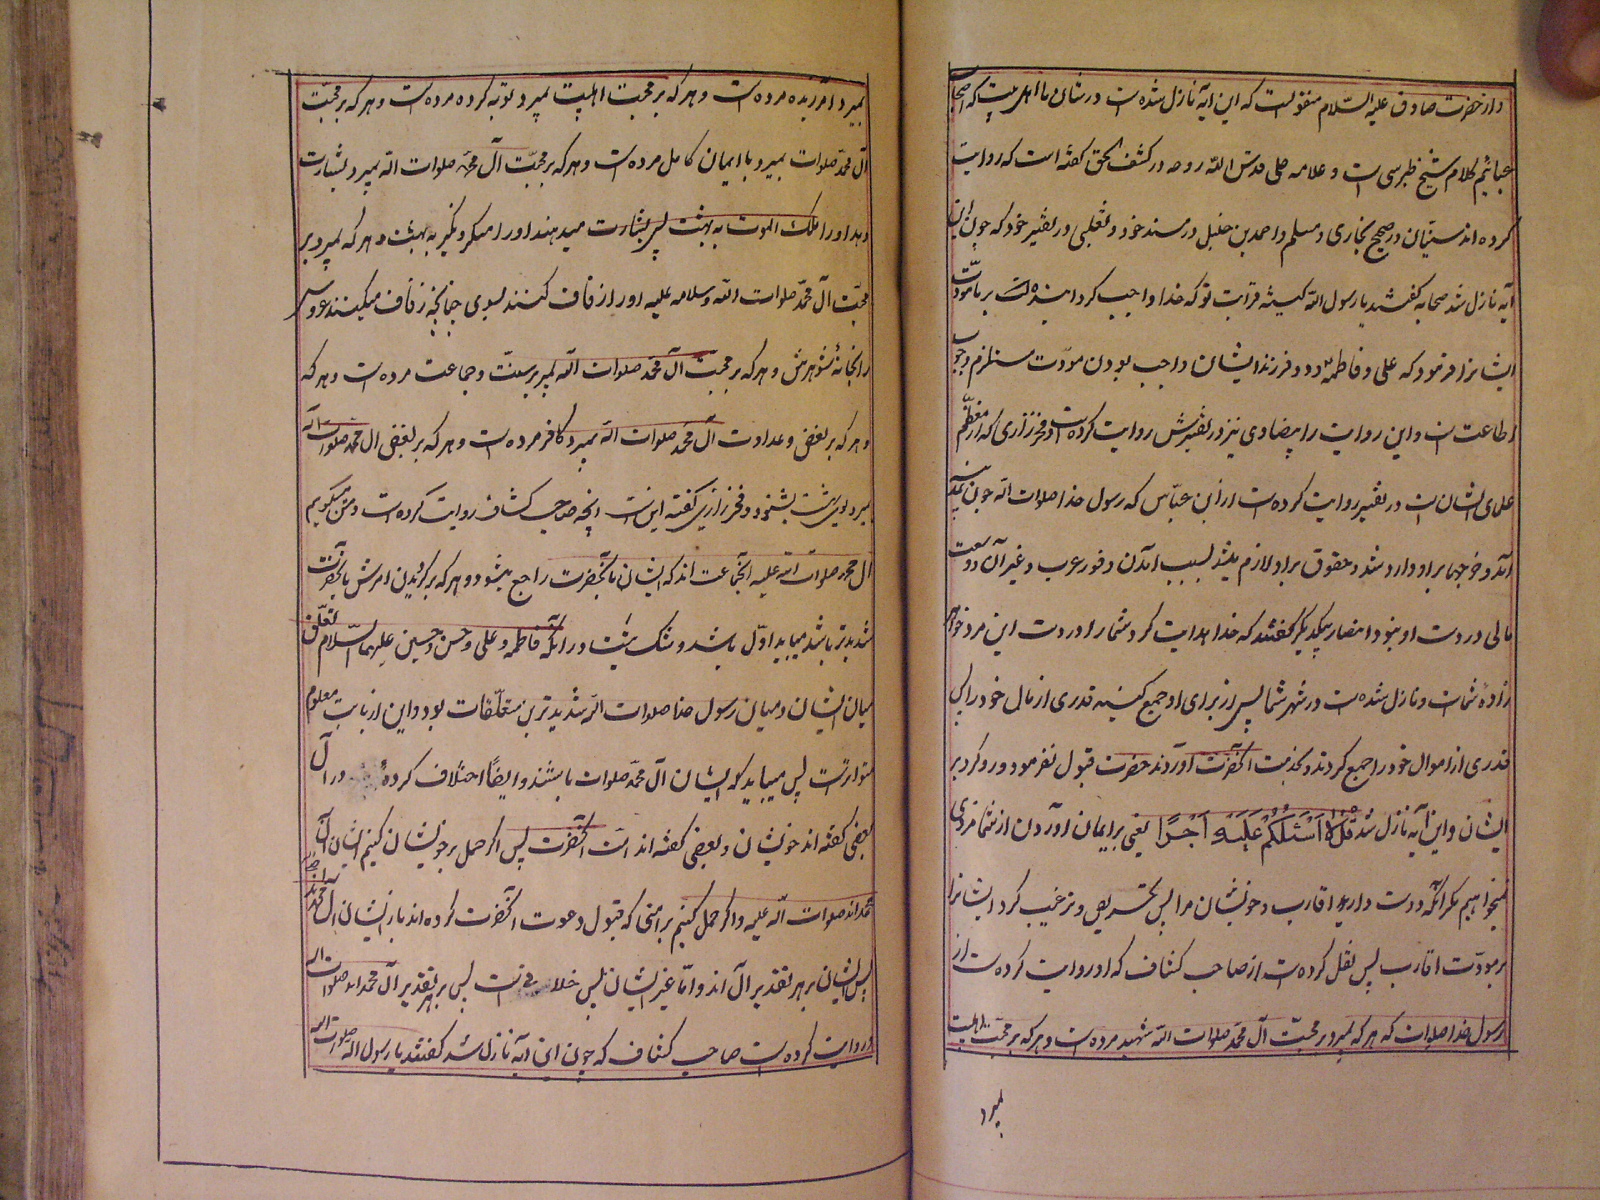 و از حضرت صادق علیه السّلام منقولست که این آیه نازل شده است در شأن ما اهل بیت که اصحاب
عبائیم کلام شیخ طبرسی است و علامه حلی قدس اللّه روحه در کشف الحق گفته است که روایت
کرده اند سنیان در صحیح بخاری و مسلم و احمد بن حنبل در مسند خود و ثعلبی در تفسیر خود که چون این
آیه نازل شد صحابه گفتند یا رسول اللّه کیستند قرابت تو که خدا واجب گردانیده است بر ما مودّت
ایشانرا فرمود که علی و فاطمه و دو فرزند ایشان و واجب بودن مودّت مستلزم وجوب
اطاعت است و این روایت را بیضاوی نیز در تفسیرش روایت کرده است و فخر رازی که از معظّم
علمای ایشان است در تفسیر روایت کرده است از ابن عبّاس که رسول خدا صلوات اللّه چون بمدینه
آمد و خرجها بر او وارد شد و حقوق بر او لازم میشد بسبب آمدن وفور عرب و غیر آن و وسعت
مالی در دست او نبود انصار بیکدیگر گفتند که خدا هدایت کرد شما را در دست این مرد خواهر
زادهٔ شماست و نازل شده است در شهر شما پس از برای او جمع کنید قدری از مال خود را پس
قدری از اموال خود را جمع کردند و بخدمت آنحضرت آوردند حضرت قبول نفرمود و رو کرد بر
ایشان و این آیه نازل شد قُلْ لا اَسْئَلُکُمْ عَلَیْهِ اَجْرًا یعنی بر ایمان آوردن از شما مزدی
نمیخواهیم مگر آنکه دوست دارید اقارب و خویشان مرا پس تحریص و ترغیب کرد ایشانرا
بر مودّت اقارب پس نقل کرده است از صاحب کشاف که او روایت کرده است از
رسول خدا صلوات که هر که بمیرد بر محبّت آل محمّد صلوات اللّه شهید مرده است و هر که بر محبّت اهلبیت
بمیرد
بمیرد آمرزیده مرده است و هر که بر محبت اهلبیت بمیرد توبه کرده مرده است و هر که بر محبّت
آل محمّد صلوات بمیرد با ایمان کامل مرده است و هر که بر محبّت آل محمّد صلوات اللّه بمیرد بشارت
دهد او را ملک الموت به بهشت پس بشارت میدهند او را منکر و نکیر به بهشت و هر که بمیرد بر
محبّت آل محمّد صلوات اللّه و سلامه علیه او را زفاف کنند بسوی چنانچه زفاف میکنند عروس
را بخانهٔ شوهرش و هر که بر محبّت آل محمّد صلوات اللّه بمیرد بر سنّت و جماعت مرده است و هر که
و هر که بر بغض و عداوت آل محمّد صلوات اللّه بمیرد کافر مرده است و هر که بر بغض آل محمّد صلوات اللّه
بمیرد بوی بهشت نشنود و فخر رازی گفته این است آنچه صاحب کشاف روایت کرده است و من میگویم
آل محمد صلوات اللّه علیه آنجماعت اند که ایشان بآنحضرت راجع میشود و هر که برگردیدن امرش بآنحضرت
شدیدتر باشد میباید اوّل باشد و شک نیست در آنکه فاطمه و علی و حسن و حسین علیهما السّلام تعلّق
میان ایشان و میان رسول خدا صلوات اللّه شدیدترین متعلّقات بود و این از باب معلوم
متواترست پس میباید که ایشان آل محمّد صلوات باشند و ایضًا اختلاف کرده در آل
بعضی گفته اند خویشان و بعضی گفته اند امّت آنحضرت پس اگر حمل بر خویشان کنیم ایشان آل
محمّداند صلوات اللّه علیه و اگر حمل کنیم بر امتی که قبول دعوت آنحضرت کرده اند باز ایشان آل محمّدند
پس ایشان بر هر تقدیر آل اند و امّا غیر ایشان پس خلافی است پس بر هر تقدیر آل محمداند صلوات اللّه
و روایت کرده است صاحب کشاف که چون این آیه نازل شد گفتند یا رسول اللّه صلوات اللّه